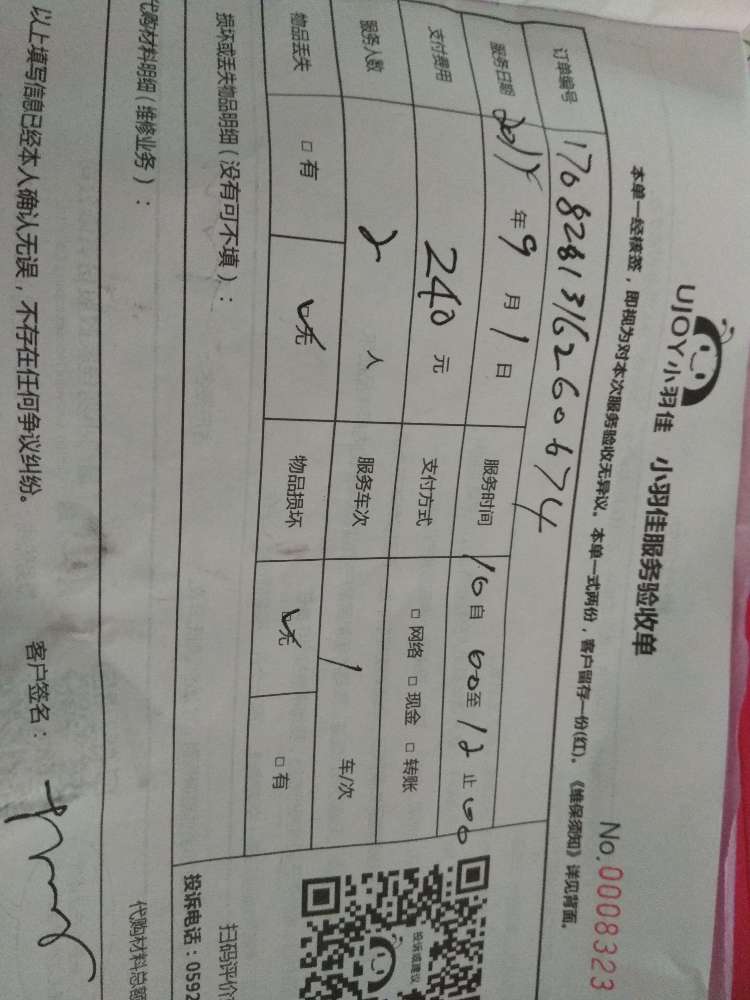 UJOY小羽佳 小羽佳服务验收单
No.0008323
本单一经核签，即视为对本次服务验收无异议。本单一式两份，客户留存一份(红)。《维保须知》详见背面。
订单编号 1708281316260674
服务日期 2017年9月1日 服务时间 10自00至12止00
支付费用 240元 支付方式 □网络 □现金 □转账
服务人数 2人 服务车次 1 车/次
物品丢失 □有 ☑无 物品损坏 ☑无 □有
损坏或丢失物品明细（没有可不填）：
投诉或建议
扫码评价
投诉电话：0592
代购材料明细（维修业务）：
代购材料总额
以上填写信息已经本人确认无误，不存在任何争议纠纷。 客户签名：